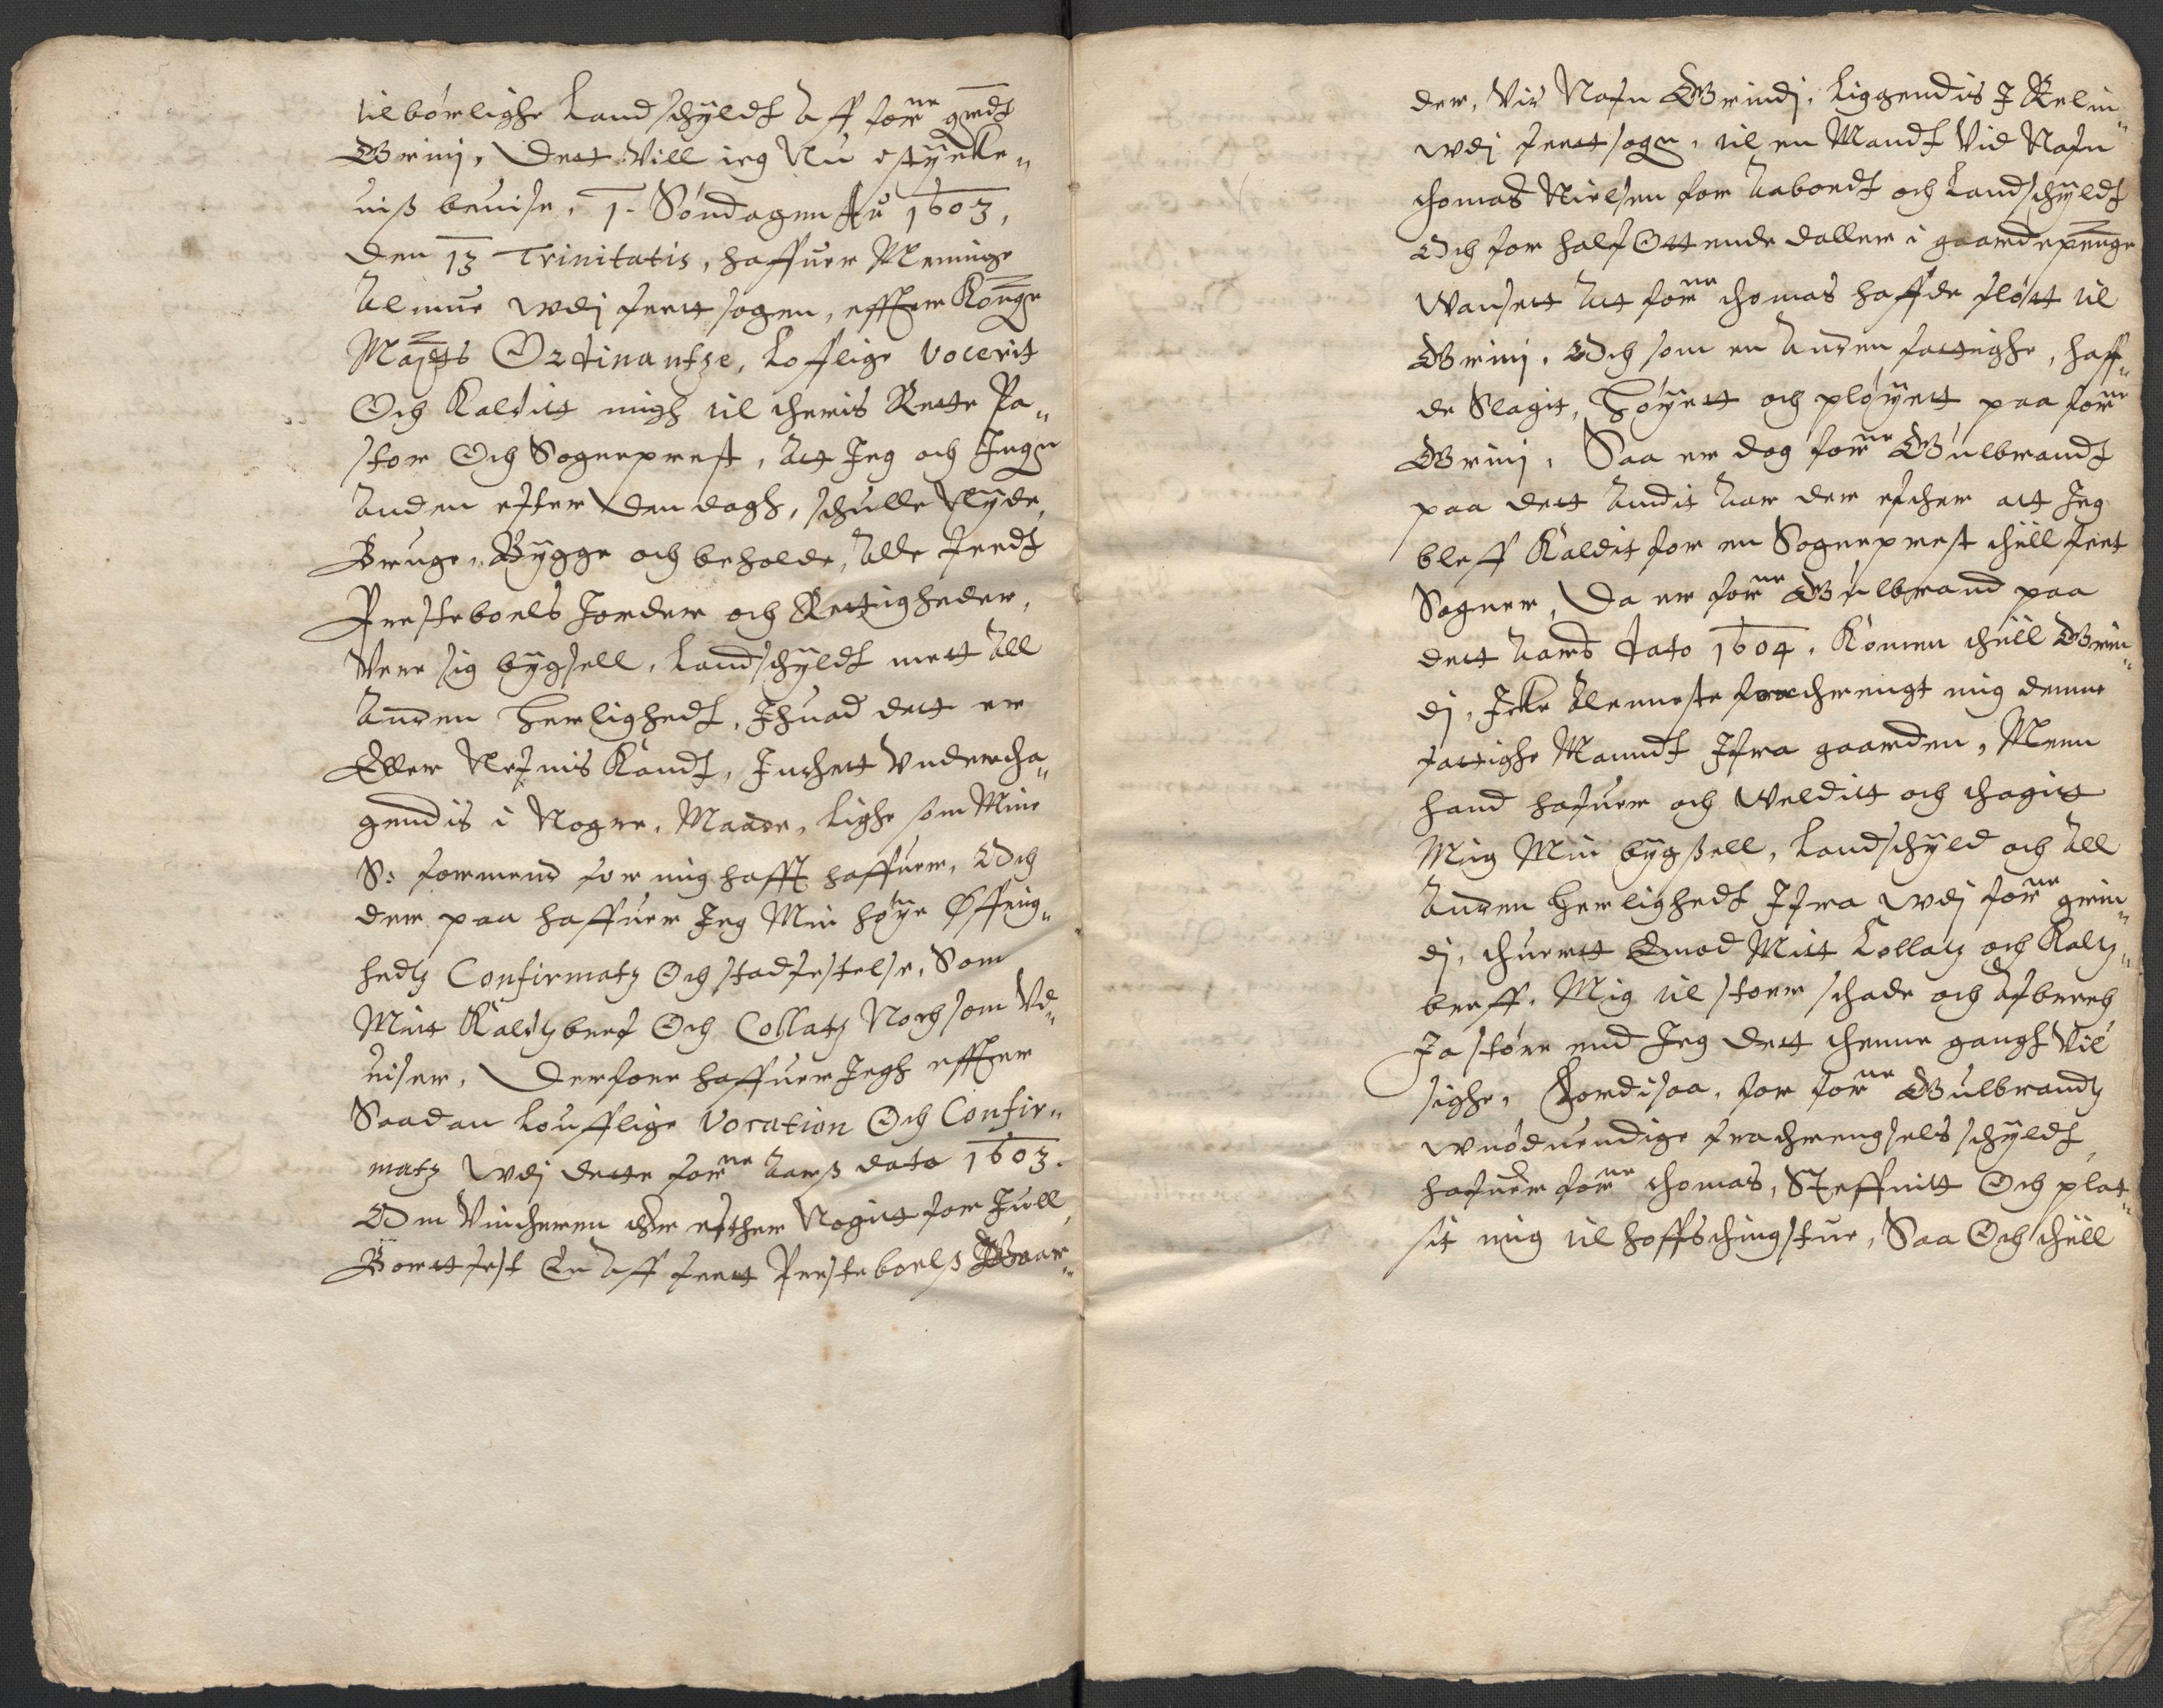 tilbørlighe Landschÿldt Aff for^ne grædt
Grinj, Dett Vill ieg Nu støcke„
uiss beuise, 1. Søndagen Ao 1603,
Den 13 Trinitatis, haffuer Meninge
Almue wdj feett sogen, effther Konge
Maÿtts Ordinantze, Lofflige Vocerit
Och Kalditt migh til theris Rette Pa„
stor Och Sogneprest, Att Jeg och Ingen
Anden efter Den dagh, schulle Nÿde,
Bruge, Bÿgge och beholde, Alle feedt
Presteboels Jorder och Rettigheder,
Vere sig bÿgsell, Landschÿldt mett All
Anden Herlighedt, Ihuad dett er
Eller Nefnis Kandt, Inthett Vndertha„
gendis i Nogre, Maade, Lighe som Mine
S: formend for mig hafft haffuer, Och
der paa haffuer Jeg Min høÿe Øffrig„
hedtz Confirmatz Och stadfestelse, Som
Mitt Kaldtzbref Och Collatz Noch som Vd„
uiser, Derforre haffuer Jegh effther
Saadan Loufflige Vocation Och Confir„
matz wdj dette for^ne Aarss dato 1603.
Om Vintheren ther efther Nogitt for Jull,
Bortfest En Aff feett Presteboelss Gaar„
der, Vid Nafn Grindj, Liggendis I Relin„
wdj feett sogn, til en Mandt Vid Nafn
thomas Nielsen for Aaboedt och Landschÿldt
Och for half Ottende daller i gaardepenge
Wansett Att for^ne thomas haffde fløtt til
Grinj, Och som en Anden fattighe, haff„
de Slagit, Høÿett och pløÿett paa for^ne
Grinj, Saa er dog for^ne Gulbrandt
paa dett Andit Aar der efther att Jeg
bleff Kaldit for en Sogneprest thill feet
Sogner, Da er for^ne Gulbrand paa
dett Aars dato 1604, Komen thill Grin„
dj, Icke Alenneste frathrengt mig denne
fattighe Manndt Ifra gaarden, Menn
hand hafuer och Welditt och thagitt
Mig Min bÿgssell, Landschÿld och All
Anden Herlighedt Ifra wdj for^ne grin„
dj, thuertt Emod Mitt Collatz och Kaltz„
breff, Mig til storr schade och Afbreeh
Ja større end Jeg dett thenne gangh Vil
sighe, Fordisaa, for for^ne Gulbrandtz
wnøduendige frathrengsels schÿldt,
hafuer for^ne thomas, Steffnitt Och plat„
sit mig til hoffs thingstue, Saa Och thill